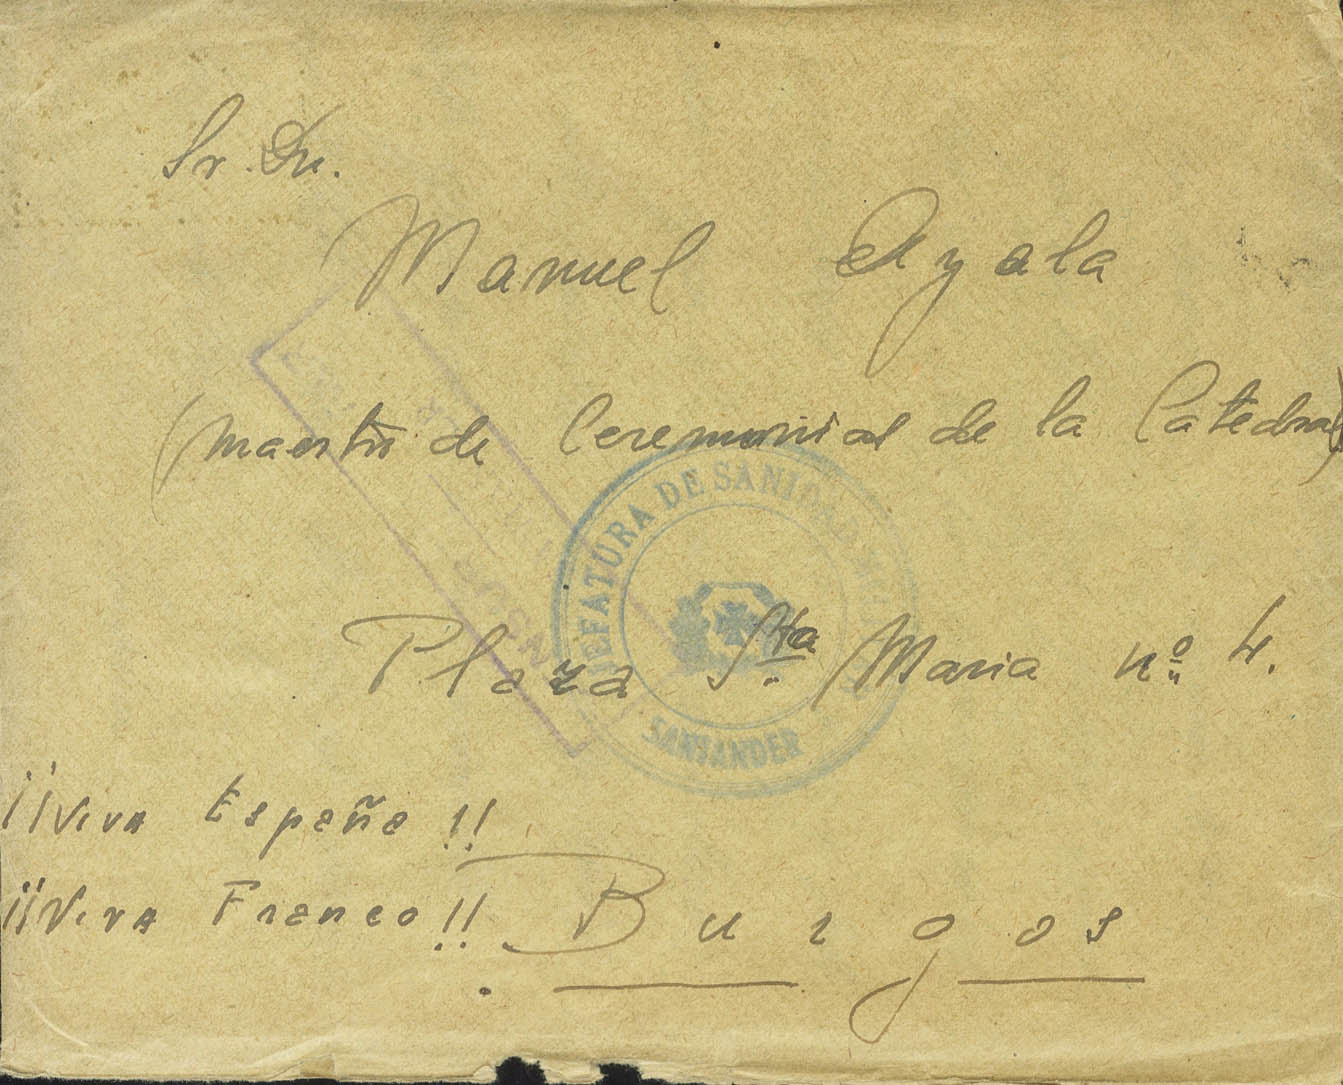 Sr. Dn.
Manuel Ayala
(maestro de Ceremonial de la Catedral)
JEFATURA DE SANIDAD
SANTANDER
Plaza Sta Maria nº 4.
¡¡Viva España!!
¡¡Viva Franco!!
Burgos